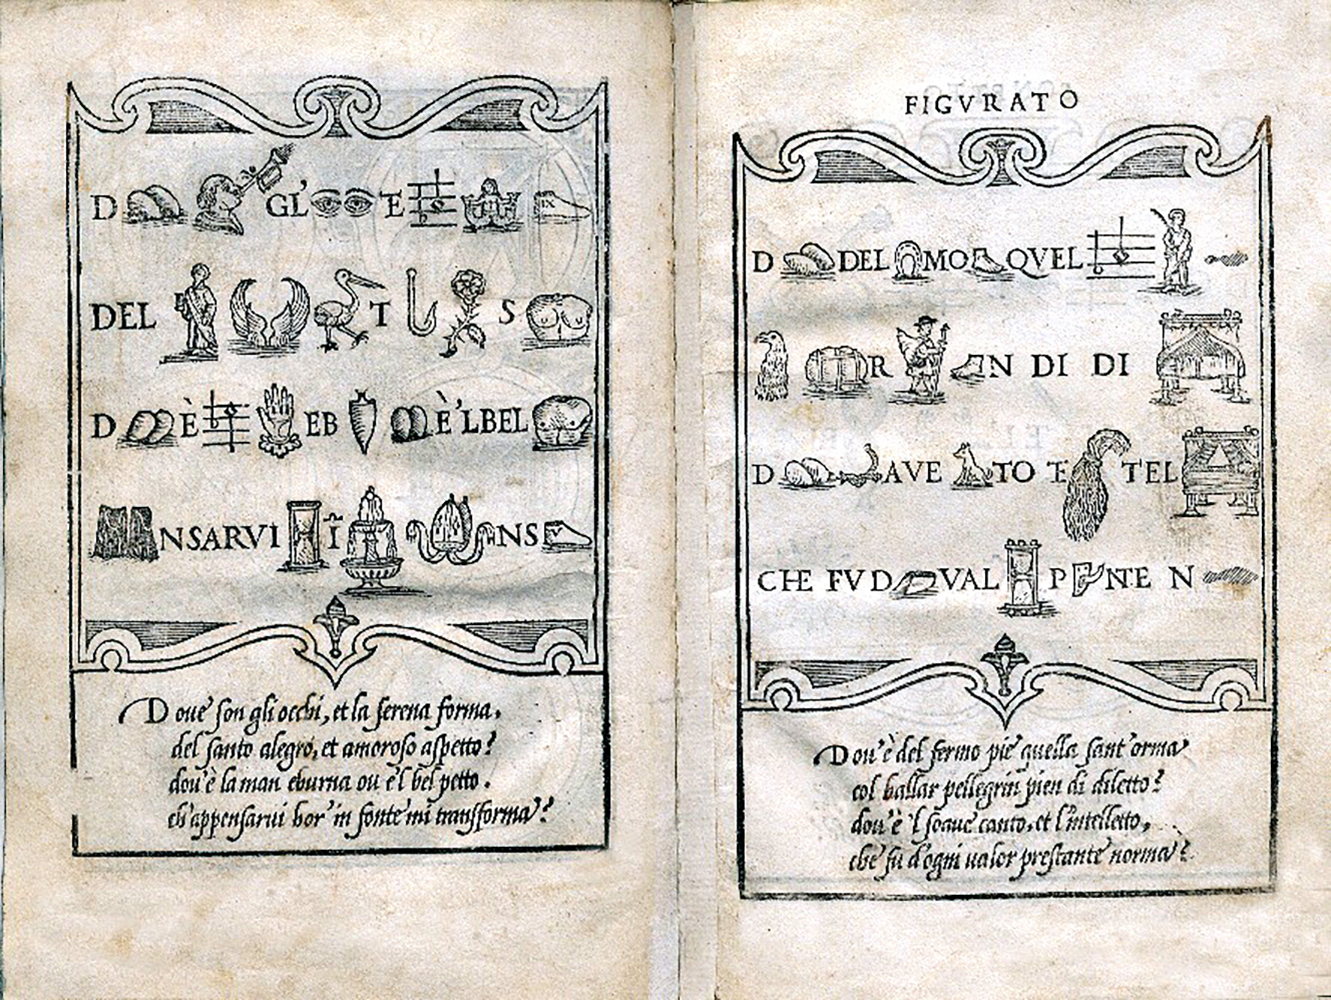 D GL' E
DEL T S
D È EB È'LBEL
NSARVI Ĩ NS
Doue son gli occhi, et la serena forma,
del santo alegro, et amoroso aspetto?
dou'è la man eburna ou'e'l bel petto.
ch'appensarui hor' in fonte mi transforma?
FIGVRATO
D DEL MO QVEL
R N DI DI
D AVE TO E T'EL
CHE FV D VAL P NTE N
Dou'è del fermo piè quella sant'orma
col ballar pellegrin pien di diletto?
dou'è 'l soaue canto, et l'intelletto,
che fù d'ogni ualor prestante norma?